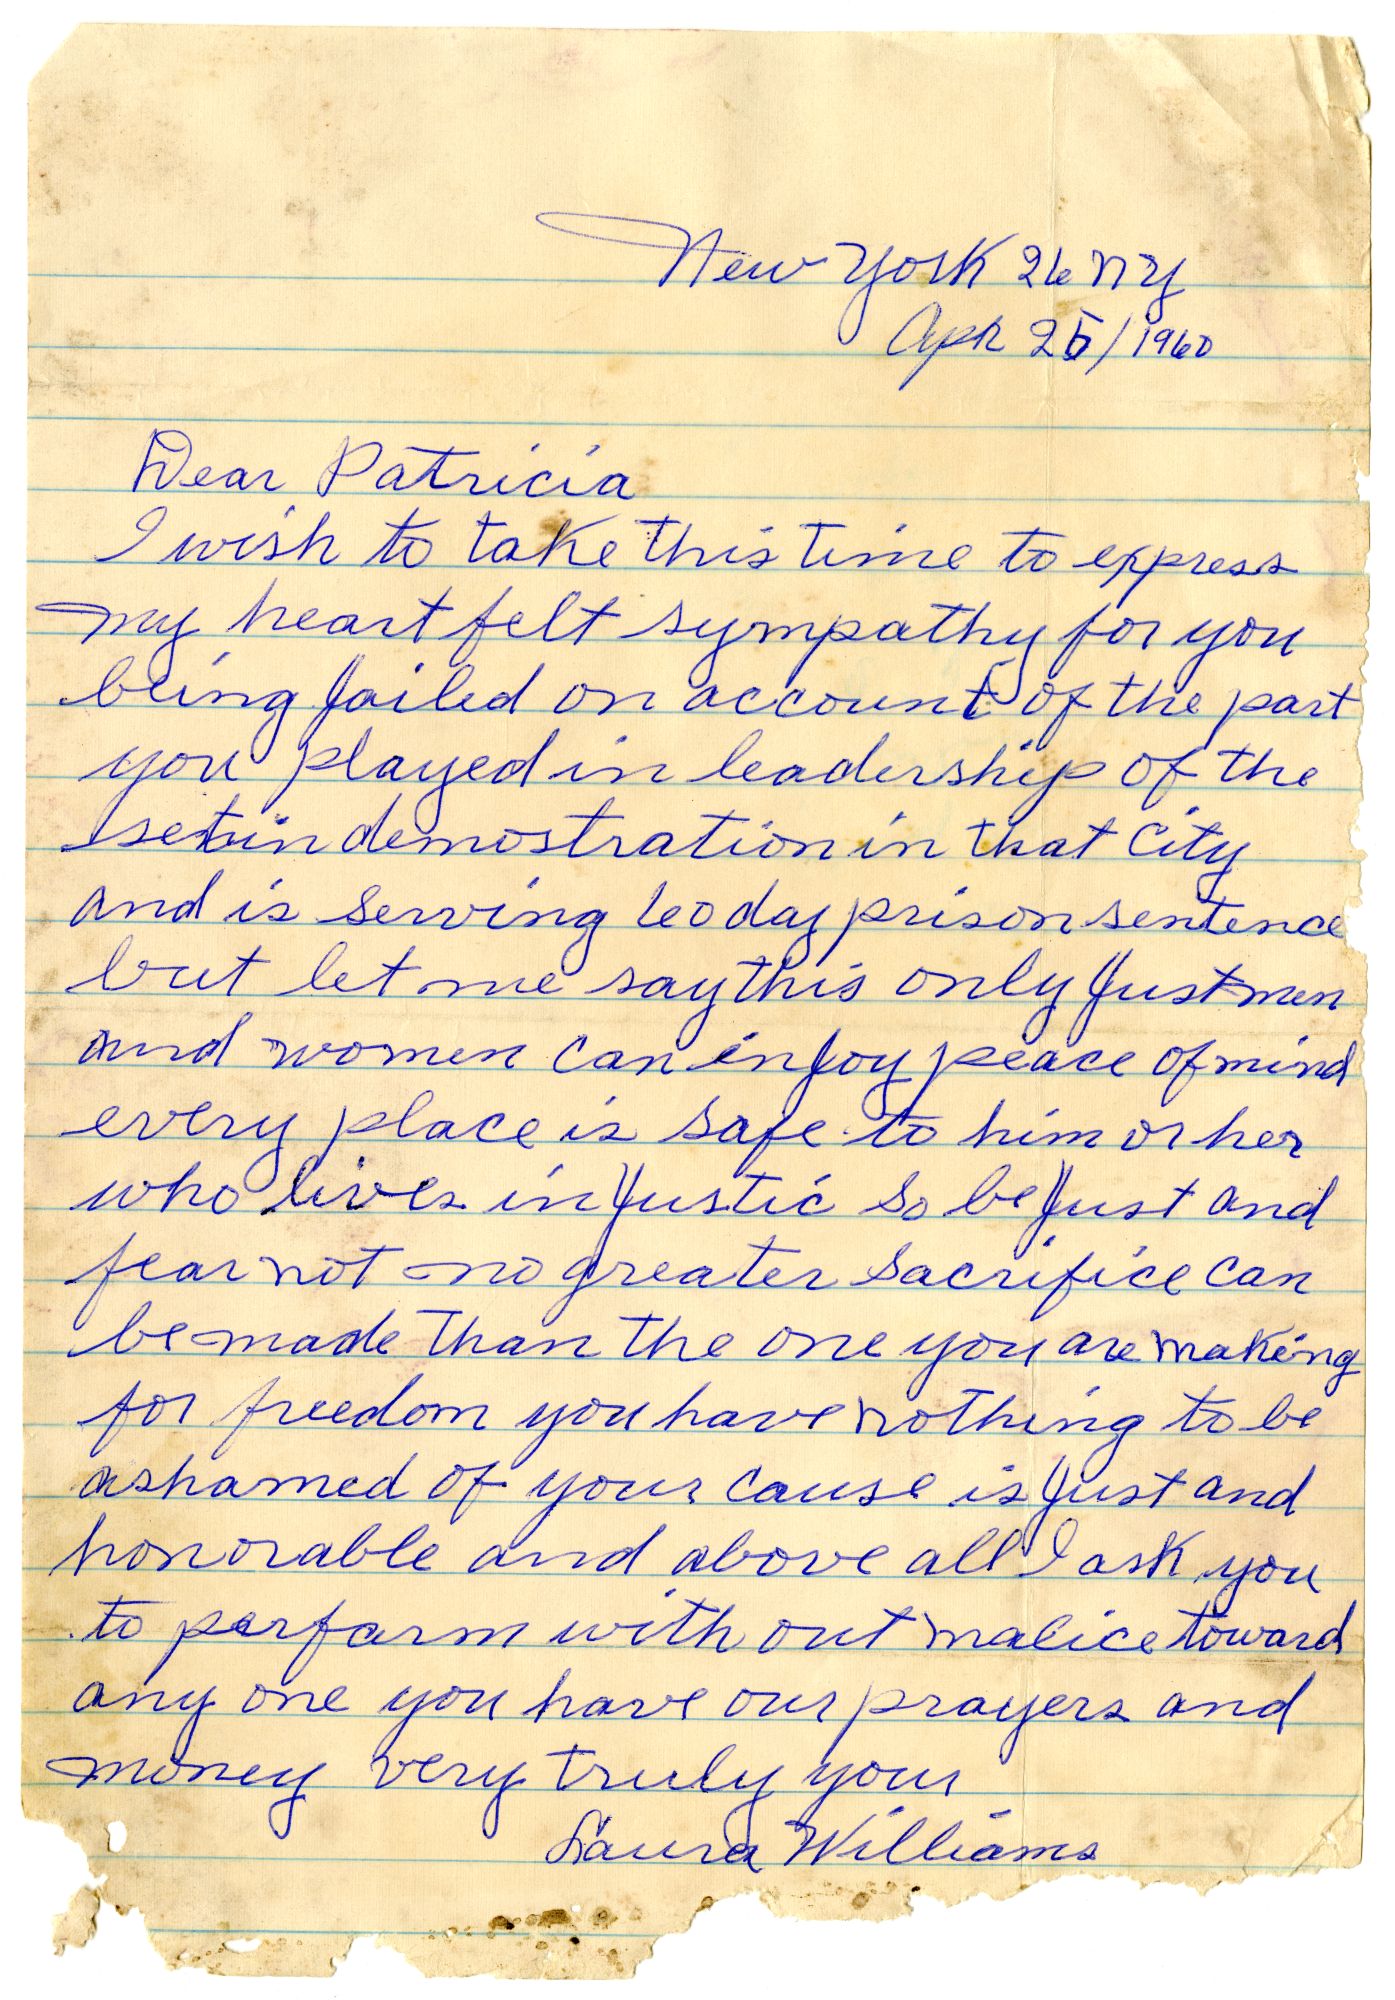 New York 26 NY
Apr 25/1960
Dear Patricia
I wish to take this time to express
my heart felt sympathy for you
being jailed on account of the part
you played in leadership of the
setin demostration in that City
and is serving 60 day prison sentence
but let me say this only Just men
and women can injoy peace of mind
every place is safe to him or her
who lives in Justic so be Just and
fear not no greater sacrifice can
be made than the one you are making
for freedom you have nothing to be
ashamed of your cause is Just and
honorable and above all I ask you
to perform with out malice toward
any one you have our prayers and
money very truly your
Laura Williams